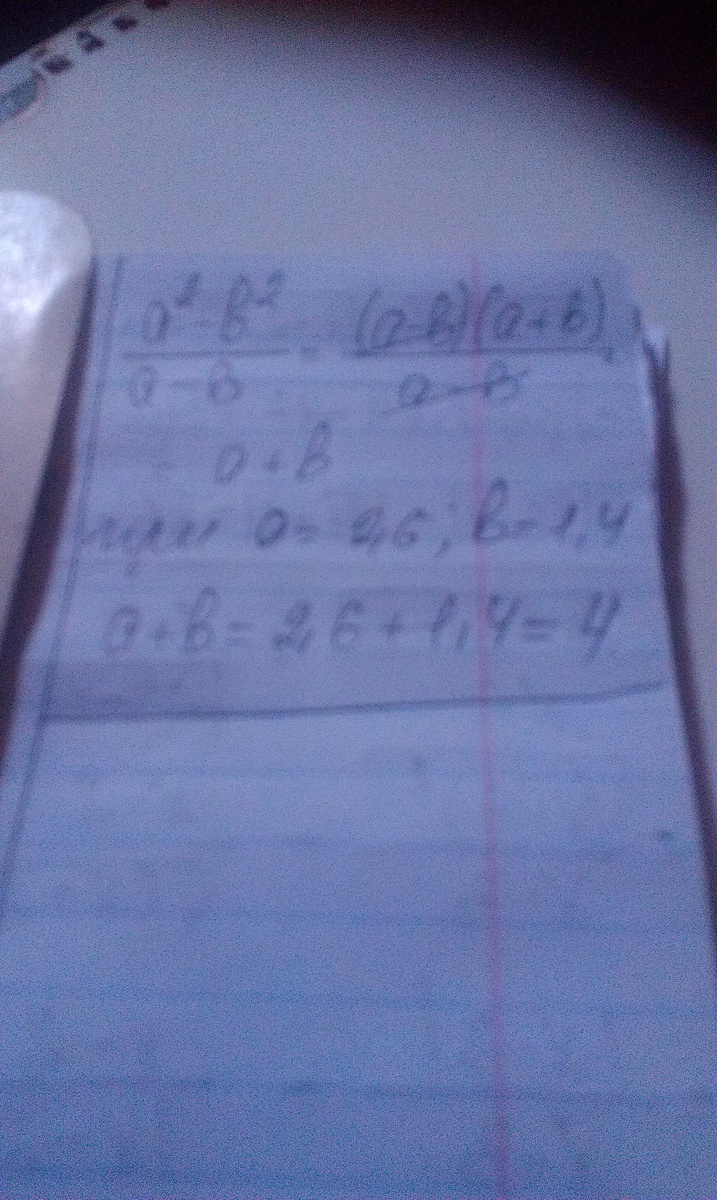 a² - b² / a - b = (a-b)(a+b) / a - b =
= a + b
при a = 2,6; b = 1,4
a + b = 2,6 + 1,4 = 4